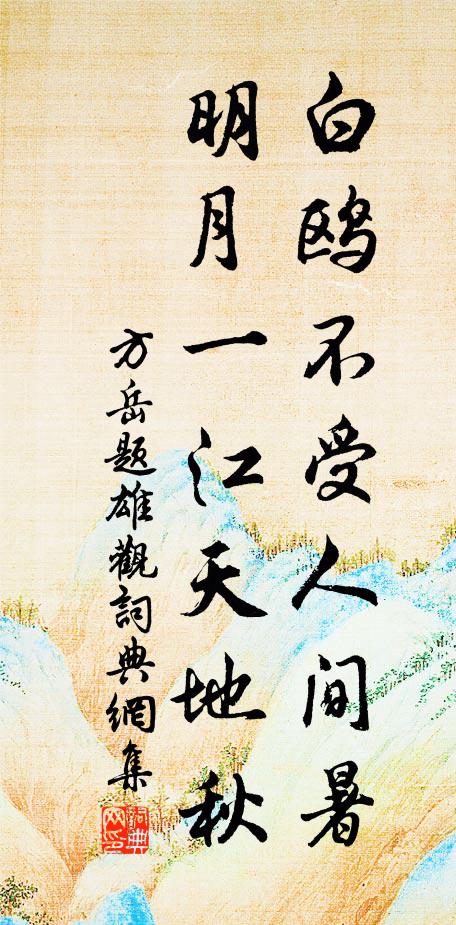 白鸥不受人间暑
明月一江天地秋
方岳题雄觀詞典網集
詞典网印